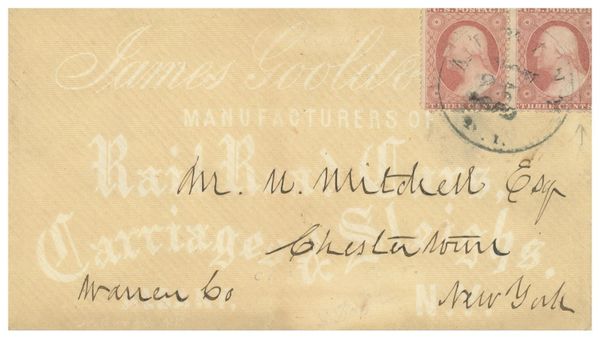 U.S. POSTAGE U.S. POSTAGE
James Goold &
THREE CENTS THREE CENTS
MANUFACTURERS OF
Rail Road Cars,
Mr. N. Mitchell Esq
Carriages & Sleighs.
Chestertown
Warren Co New York